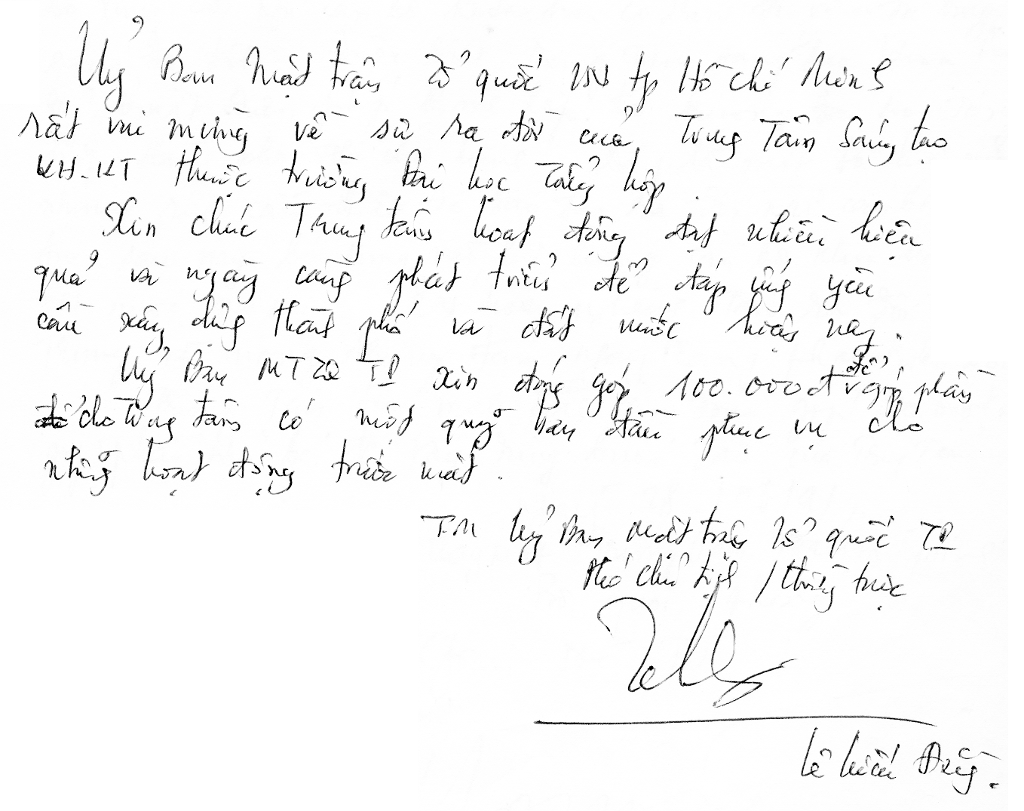 Uỷ Ban Mặt trận Tổ quốc VN tp Hồ Chí Minh
rất vui mừng về sự ra đời của Trung Tâm Sáng tạo
KH-KT thuộc trường Đại học Tổng hợp.
Xin chúc Trung tâm hoạt động đạt nhiều hiệu
quả và ngày càng phát triển để đáp ứng yêu
cầu xây dựng thành phố và đất nước hiện nay.
Uỷ Ban MTTQ TP xin đóng góp 100.000đ để góp phần
cho trung tâm có một quỹ ban đầu phục vụ cho
những hoạt động trước mắt.
TM Uỷ Ban Mặt trận Tổ quốc TP
Phó Chủ tịch / thường trực
Lê Hiếu Đằng.